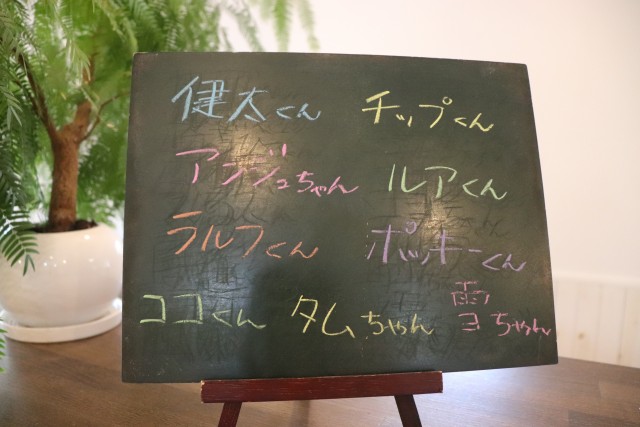 健太くん チップくん
アンジュちゃん ルアくん
ラルフくん ポッキーくん
ココくん タムちゃん 雪ちゃん